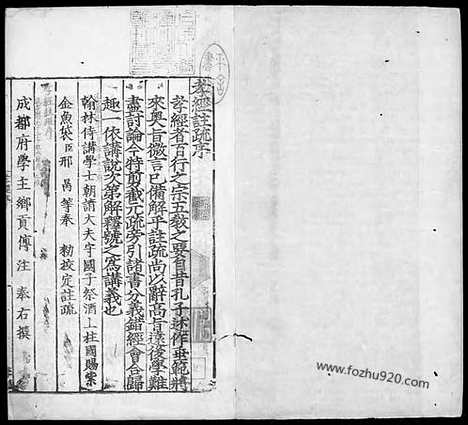 孝經註疏序
孝經者百行之宗五敎之要自昔孔子述作垂範將
來奥旨微言已備解乎註疏尚以辭高旨逺後學難
盡討論今特剪截元疏旁引諸書分義錯經會合歸
趣一依講說次第解釋號之爲講義也
翰林侍講學士朝請大夫守國子祭酒上柱國賜紫
金魚袋臣邢昺等奉 勅校定註疏
成都府學主鄉貢傅注 奉右撰
www.fozhu920.com